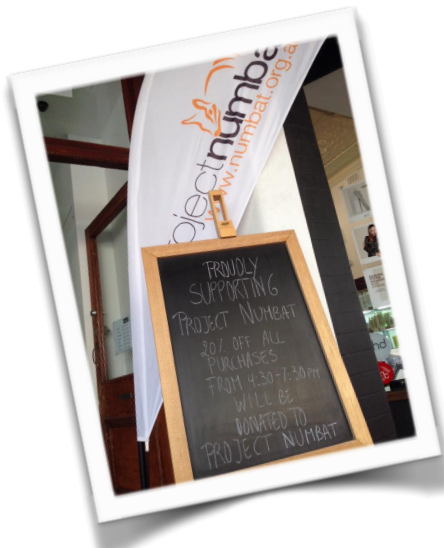 projectnumba
www.numbat.org.a
PROUDLY
SUPPORTING
PROJECT NUMBAT
20% OFF ALL
PURCHASES
FROM 4:30-7:30PM
WILL BE
DONATED TO
PROJECT NUMBAT